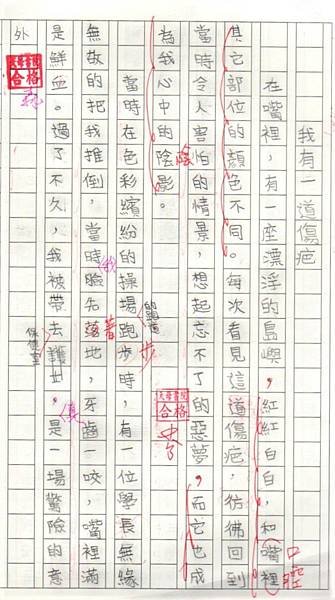 我有一道傷疤
在嘴裡，有一座漂浮的島嶼，紅紅白白，和嘴裡
口腔
其它部位的顏色不同。每次看見這道傷疤，彷彿回到
當時令人害怕的情景，想起忘不了的惡夢，而它也成
合格
為我心中的陰影。
陰
當時在色彩繽紛的操場跑步時，有一位學長無緣
的跑道
步
無故的把我推倒，當時臉先落地，牙齒一咬，嘴裡滿
我
著
是鮮血。過了不久，我被帶去，是一場驚險的意
保健室
真
外
合格